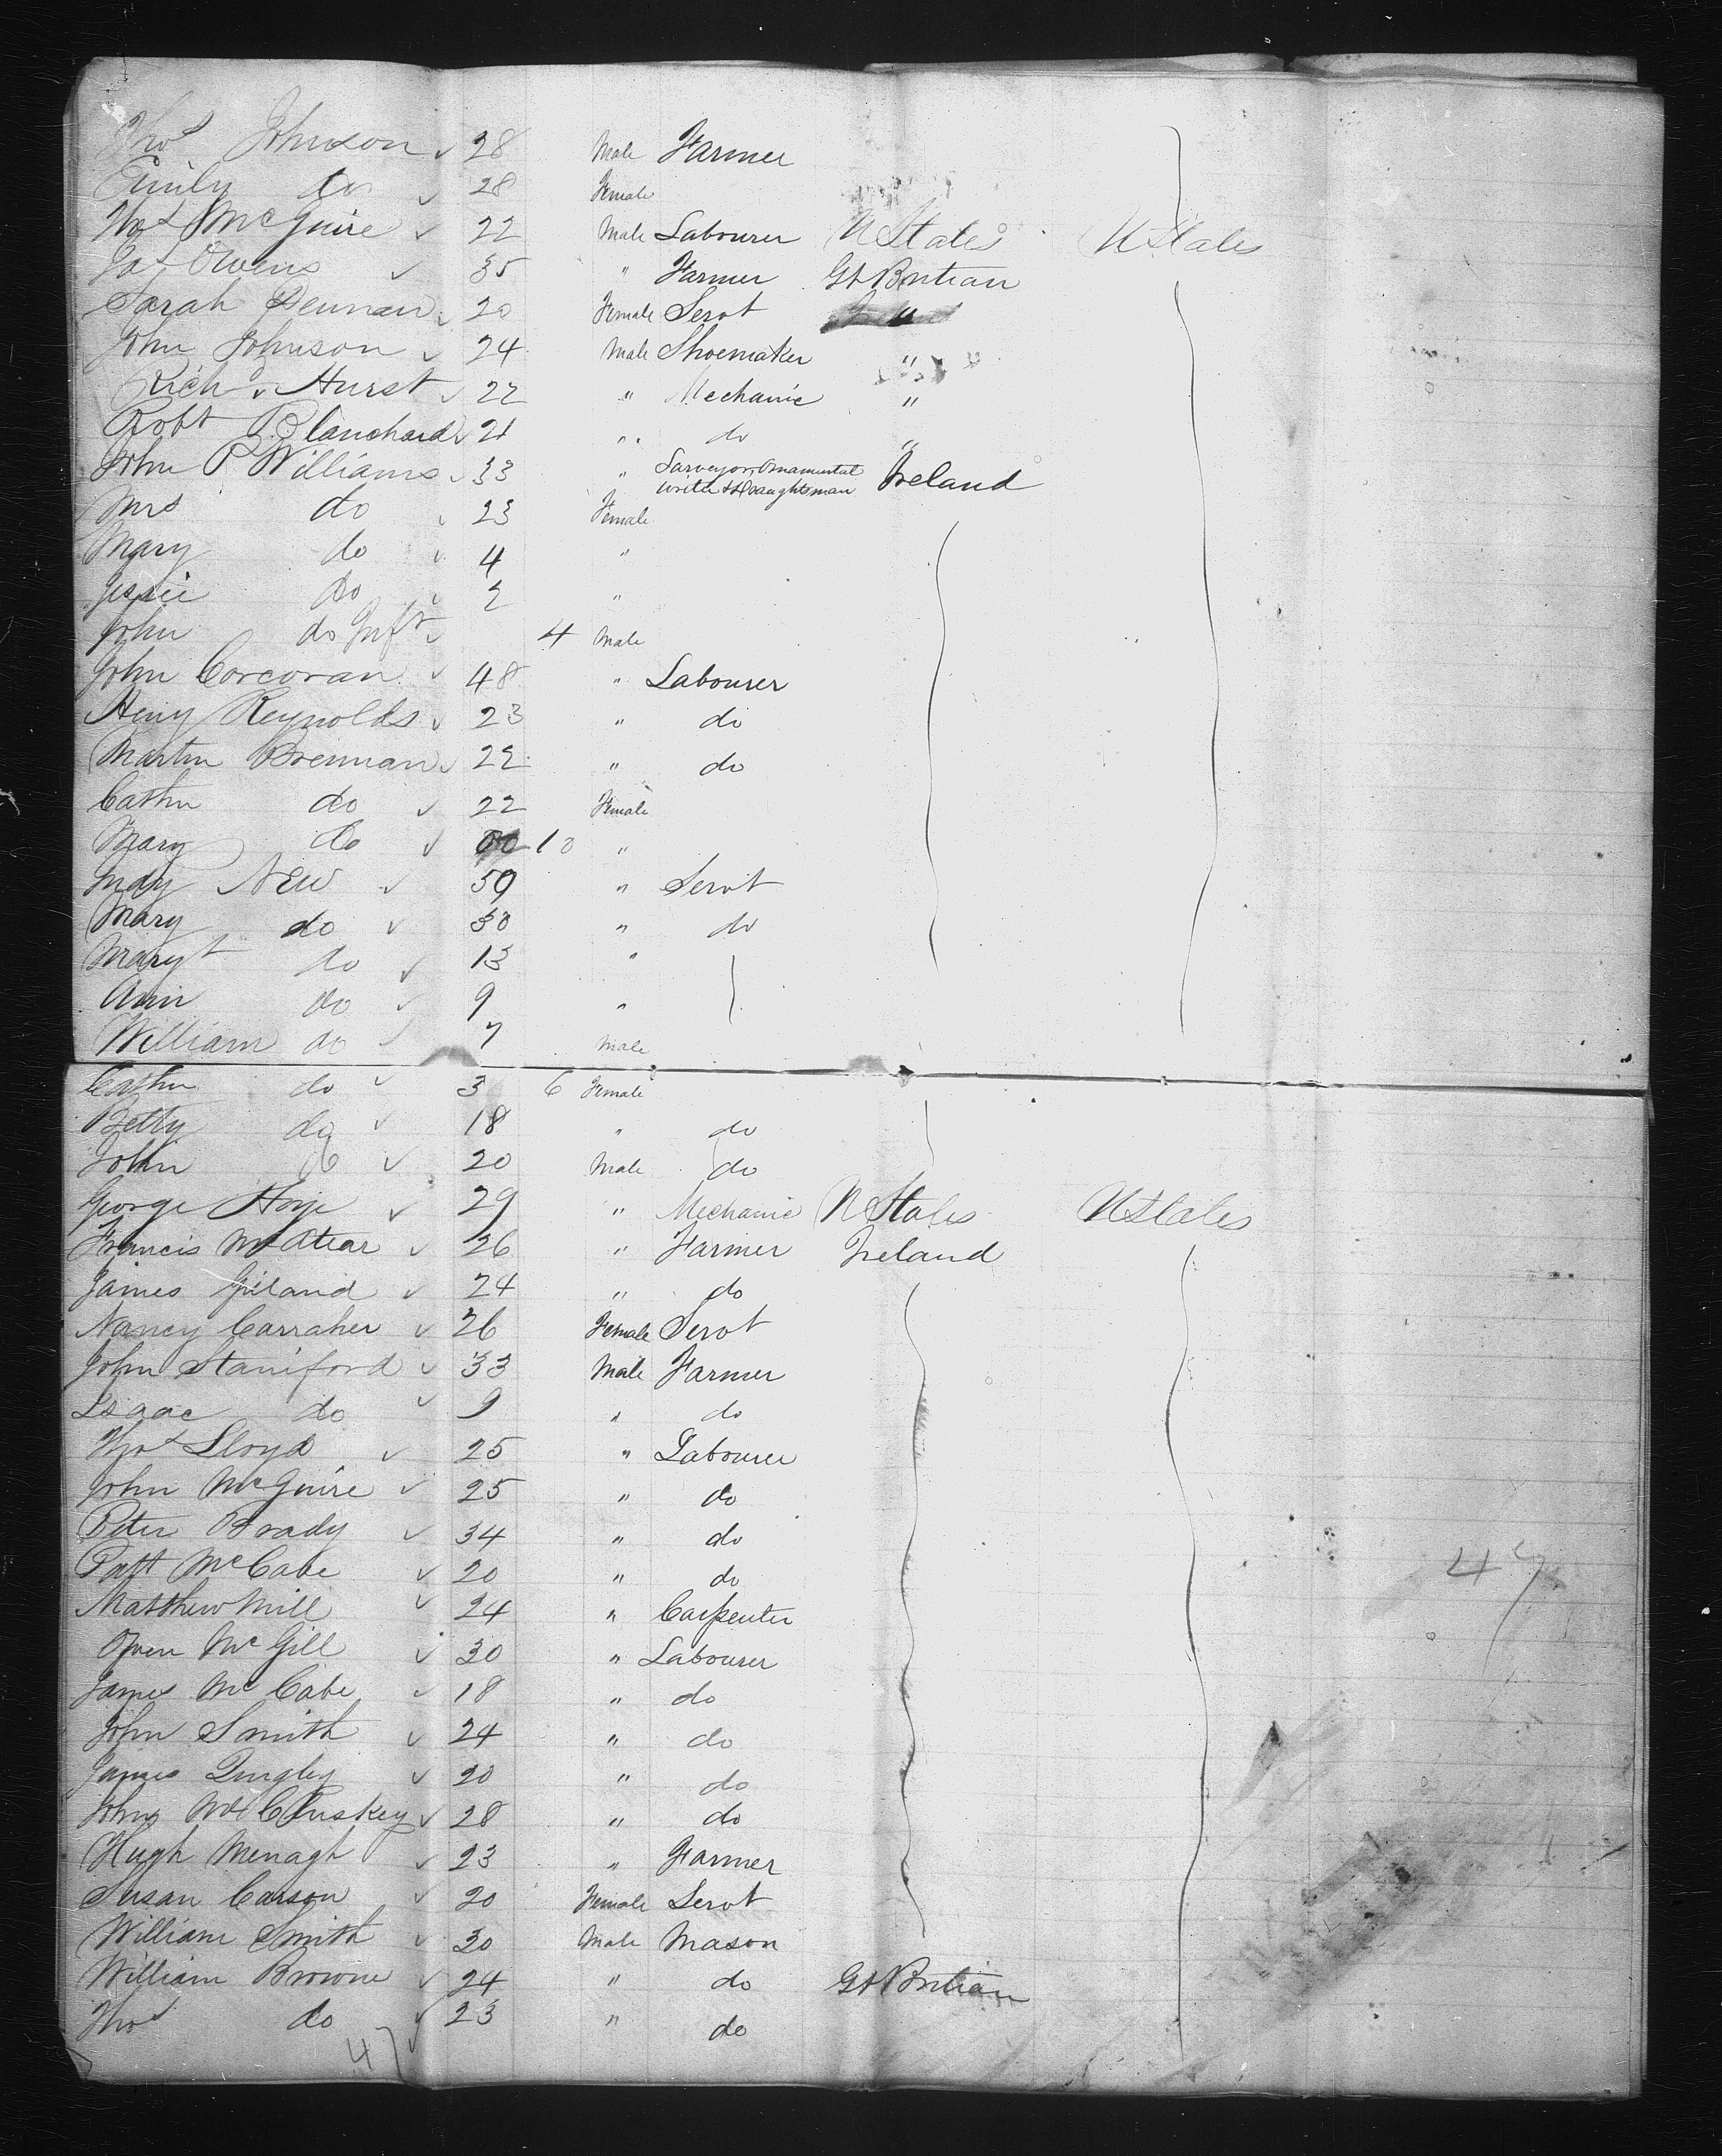 Thos Johnson 28 Male Farmer
Emily do 28 Female
Thos McGuire 22 Male Labourer U States U States
Jas Owens 35 " Farmer Gt Britian
Sarah Dennan 20 Female Servt "
John Johnson 24 Male Shoemaker "
Richd Hurst 22 " Mechanic "
Robt Blanchard 21 " do "
John P Williams 33 " Surveyor Ornamental writer & Draughtsman Ireland
Mrs do 23 Female
Mary do 4 "
Jessie do 2 "
John do Inft 4 Male
John Corcoran 48 " Labourer
Henry Reynolds 23 " do
Martin Brennan 22 " do
Cathn do 22 Female
Mary do 10 "
Judy New 50 " Servt
Mary do 30 " do
Maryt do 13 "
Ann do 9 "
William do 7 Male
Cathn do 3 6 Female
Betty do 18 " do
John do 20 Male do
George Hoye 29 " Mechanic U States U States
Francis McAtear 26 " Farmer Ireland
James Giland 24 " do
Nancy Carraher 26 Female Servt
John Staniford 33 Male Farmer
Isaac do 9 " do
Thos Lloyd 25 " Labourer
John McGuire 25 " do
Peter Brady 34 " do
Patt McCabe 20 " do
47
Matthew Mill 24 " Carpenter
Owen McGill 30 " Labourer
James McCabe 18 " do
John Smith 24 " do
James Quigley 20 " do
John McCluskey 28 " do
Hugh Menagh 23 " Farmer
Susan Carson 20 Female Servt
William Smith 30 Male Mason
William Browne 24 " do Gt Britian
Thos do 23 " do
47